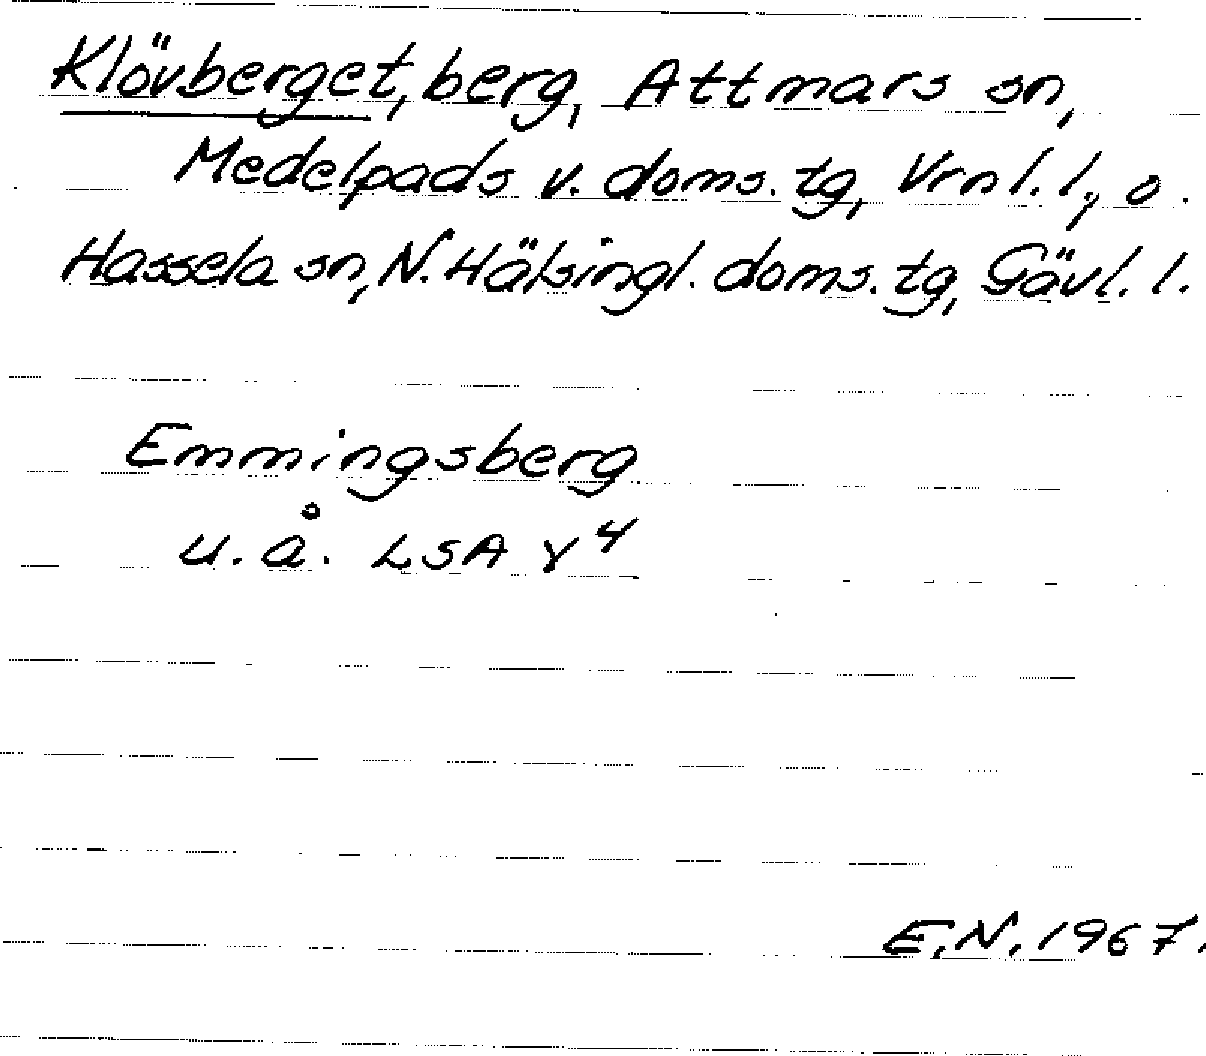 Klövberget, berg, Attmars sn,
Medelpads v. doms. tg, Vrnl. l., o.
Hassela sn, N. Hälsingl. doms. tg, Gävl. l.
Emmingsberg
u. å. LSA Y4
E. N. 1967.